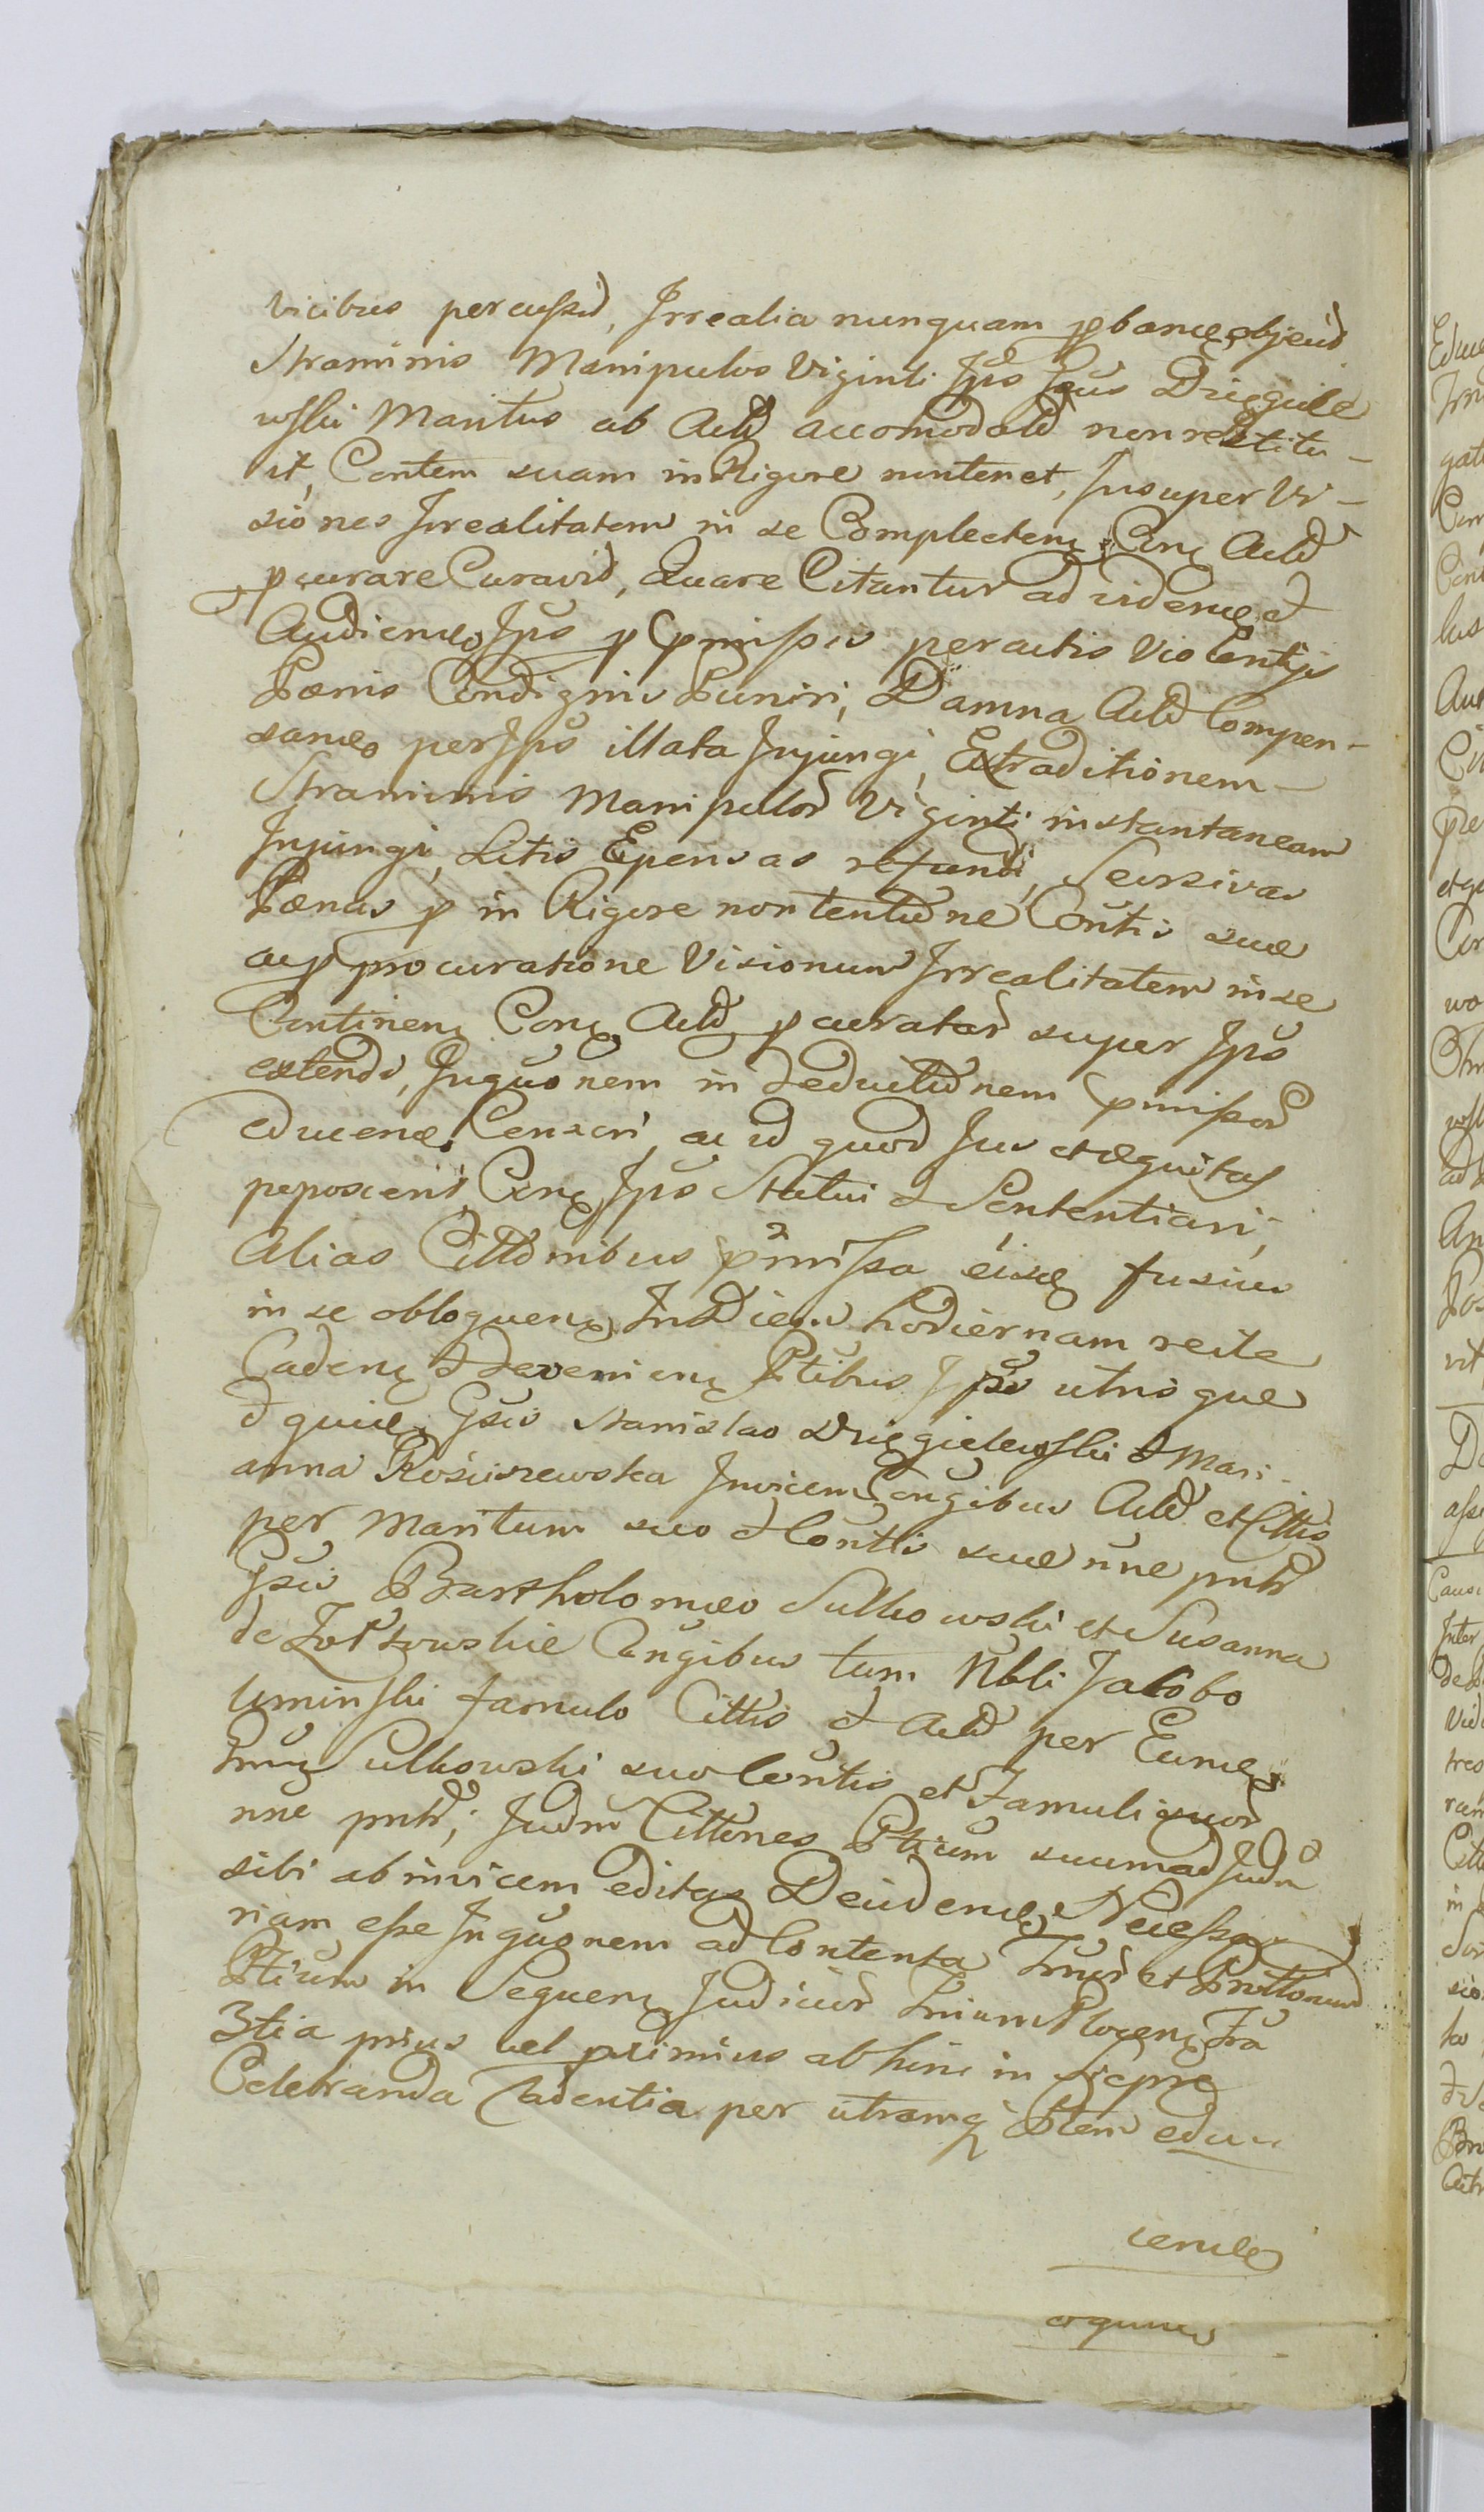 vicibus percussit, Irrealia nunquam pbanda objecit
Straminis Manipulos Viginti Ips Gsus Dzięgiele
wski Maritus ab Actd accomodatd non restitu-
it, Contem suam in Rigore non tenet, Insuper Vi-
siones Irrealitatem in se Complecten Con Actd
pcurare Curavit, Quare Citantur ad vidend et
Audiend Ips p pmissis peractis Violentijs
Pænis Condignis Puniri, Damna Actd Compen-
sand per Ips illata Injungi, Extraditionem
Straminis Manipulor Viginti instantaneam
Injungi, Litis Epensas refundi, Seorsivas
Pænas p in Rigore non tentione Contis suæ
ac p procuratione Visionum Irrealitatem in se
Continen Con Actd pcuratar super Ips
extendi, Inquonem in deductionem pmissor
educend Censeri, ac id quod Jus et æquitas
poposcerit, Con Ips Statui et Sententiari,
Alias Cittonibus pmissa eisd fusius
in se obloquen In Diem hodiernam recte
Caden et devenien Ptibus Ipsis utrisque
et quid Gsis Stanislao Dzięgielewski et Mari-
anna Rościszewska Invicem Congibus Actd et Cittis
per Maritum suo et Contis suæ nne pntr
Gsis Bartholomæo Sulkowski et Susanna
de Żółtowskie Congibus tum Nbli Jacobo
Uminski famulo Cittis et Actd per Eund
Sulkowski suo Contis et Famuli suor
nne pntr, Judm Cittones Ptium suum ad Judm
sibi ab invicem editas Decidend Necessa
riam esse Inquonem ad Contenta et
Ptium in Sequen Judicior Plocen
3tia prius vel primius ab hinc in Sierpc
Celebranda Cadentia per utramq Ptem edu
cend